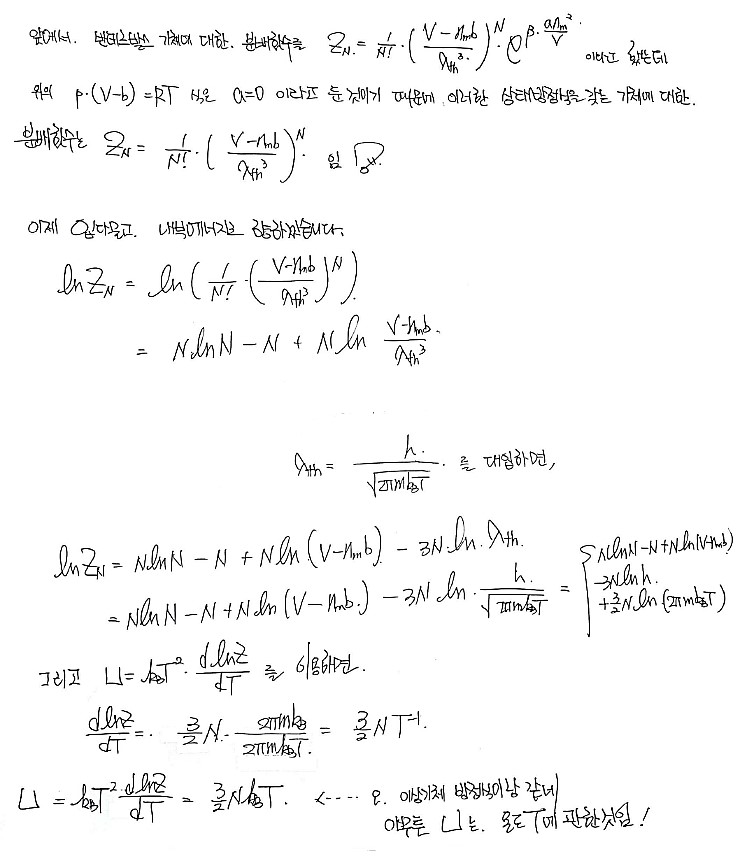 앞에서. 반데르발스 기체에 대한. 분배함수를 Z_N = 1/N! · ((V - n_m b)/λ_th³)^N · e^(β · a n_m²/V) 이라고 했는데
위의 p·(V-b) = RT 식은 a=0 이라고 둔 것이기 때문에, 이러한 상태방정식을 갖는 기체에 대한.
분배함수는 Z_N = 1/N! · ((V - n_m b)/λ_th³)^N 임
이제 내부에너지를 구하겠습니다.
ln Z_N = ln (1/N! · ((V - n_m b)/λ_th³)^N)
= N ln N - N + N ln (V - n_m b)/λ_th³
λ_th = h/√(2πmk_BT) 를 대입하면,
ln Z_N = N ln N - N + N ln (V - n_m b) - 3N ln λ_th
= N ln N - N + N ln (V - n_m b) - 3N ln · h/√(2πmk_BT) = { N ln N - N + N ln (V - n_m b)
- 3N ln h
+ 3/2 N ln (2πmk_BT)
그리고 U = k_BT² · d ln Z/dT 를 이용하면.
d ln Z/dT = 3/2 N · 2πmk_B/2πmk_BT = 3/2 N T⁻¹
U = k_BT² · d ln Z/dT = 3/2 N k_BT. <---- 오. 이상기체 방정식이랑 같네
아무튼 U는. 온도 T에 관한것임!